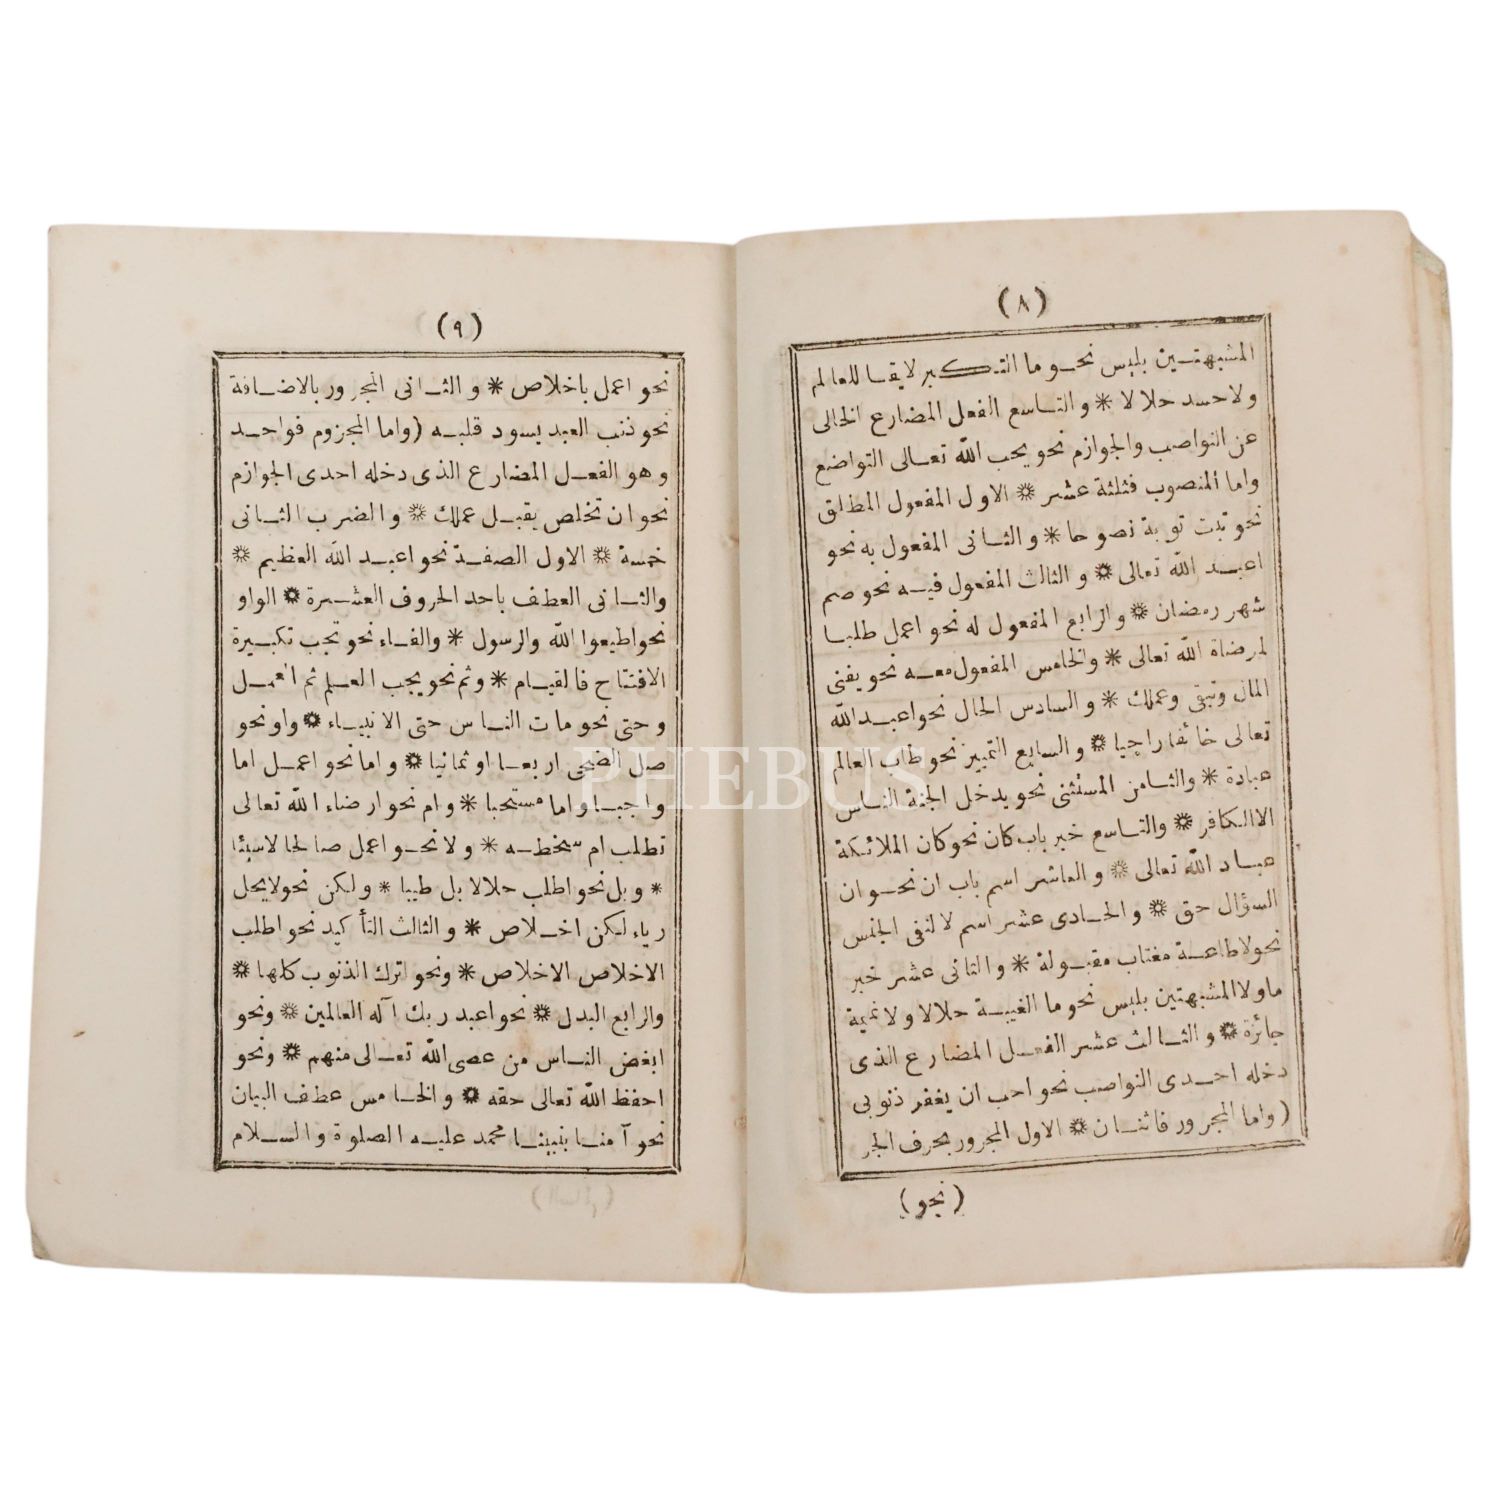 (٨)
المشبهتين بليس نحو ما التكبر لايقا للعالم
ولاحسد حلالا * والتاسع الفعل المضارع الخالى
عن النواصب والجوازم نحو يحب الله تعالى التواضع
واما المنصوب فثلثة عشر * الاول المفعول المطلق
نحو تبت توبة نصوحا * والثانى المفعول به نحو
اعبد الله تعالى * والثالث المفعول فيه نحو صم
شهر رمضان * والرابع المفعول له نحو اعمل طلبا
لمرضاة الله تعالى * والخامس المفعول معه نحو يفنى
المال وتبقى وعملك * والسادس الحال نحو اعبد الله
تعالى خائفا راجيا * والسابع التمييز نحو طاب العالم
عبادة * والثامن المستثنى نحو يدخل الجنة الناس
الا الكافر * والتاسع خبر باب كان نحو كان الملائكة
عباد الله تعالى * والعاشر اسم باب ان نحو ان
السؤال حق * والحادى عشر اسم لا لنفى الجنس
نحو لاطاعة مغتاب مقبولة * والثانى عشر خبر
ما ولا المشبهتين بليس نحو ما الغيبة حلالا ولا نميمة
جائزة * والثالث عشر الفعل المضارع الذى
دخله احدى النواصب نحو احب ان يغفر ذنوبى
(واما المجرور فاثنان * الاول المجرور بحرف الجر
(نحو)
(٩)
نحو اعمل باخلاص * والثانى المجرور بالاضافة
نحو ذنب العبد يسود قلبه (واما المجزوم فواحد
وهو الفعل المضارع الذى دخله احدى الجوازم
نحو ان تخلص يقبل عملك * والضرب الثانى
خمسة * الاول الصفة نحو اعبد الله العظيم *
والثانى العطف باحد الحروف العشرة * الواو
نحو اطيعوا الله والرسول * والفاء نحو تجب تكبيرة
الافتتاح فالقيام * وثم نحو يجب العلم ثم العمل
وحتى نحو مات الناس حتى الانبياء * واو نحو
صل الضحى اربعا او ثمانيا * واما نحو اعمل اما
واجبا واما مستحبا * وام نحو ارضاء الله تعالى
تطلب ام سخطه * ولا نحو اعمل صالحا لاسيئا
* وبل نحو اطلب حلالا بل طيبا * ولكن نحو لايحل
رياء لكن اخلاص * والثالث التأكيد نحو اطلب
الاخلاص الاخلاص * ونحو اترك الذنوب كلها *
والرابع البدل * نحو اعبد ربك آله العالمين * ونحو
ابغض الناس من عصى الله تعالى منهم * ونحو
احفظ الله تعالى حقه * والخامس عطف البيان
نحو آمنا بنبينا محمد عليه الصلوة والسلام
PHEBUS